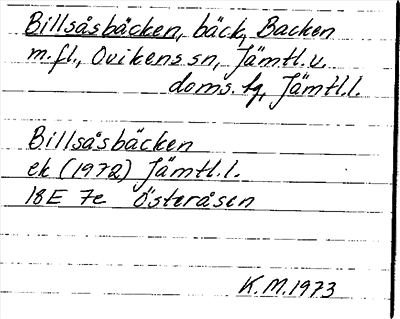 Billsåsbäcken, bäck, Backen
m.fl., Ovikens sn, Jämtl.v.
doms.sg, Jämtl.l.
Billsåsbäcken
ek (1972) Jämtl.l.
18E 7e Österåsen
K.M.1973